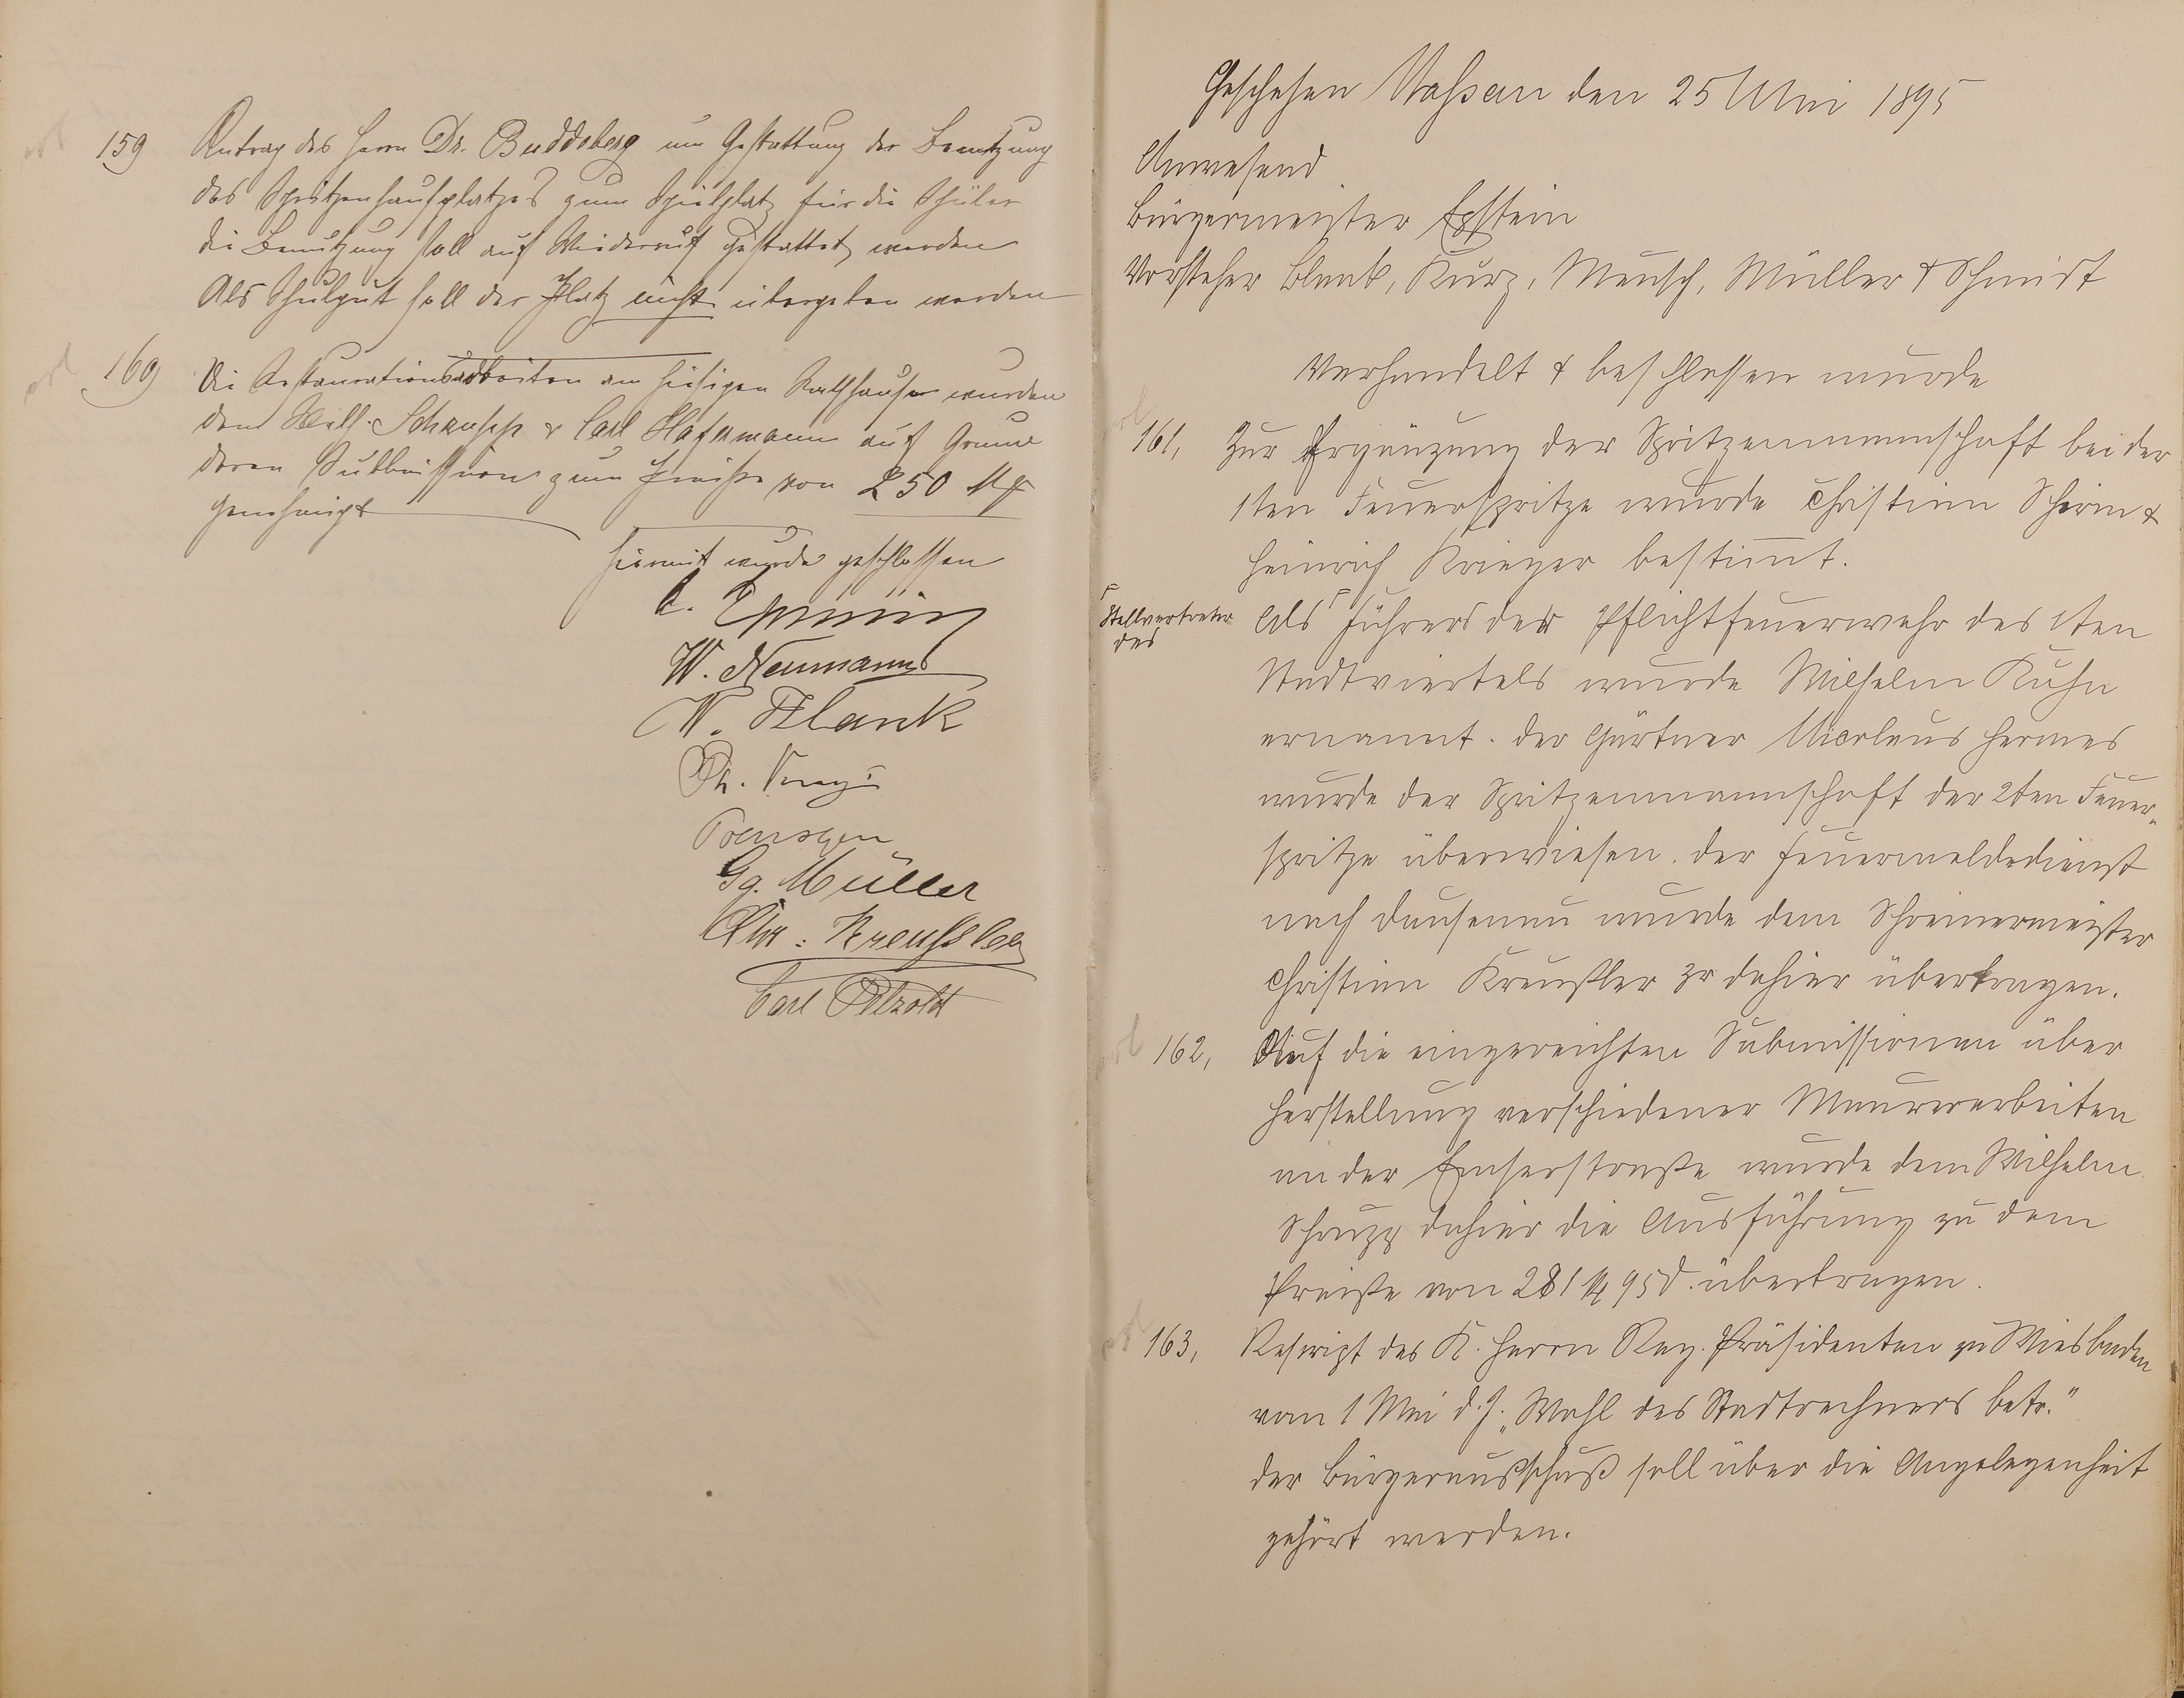 159 Antrag des Herrn Dr. Buddeberg um Gestattung der Benutzung
des Spritzenhausplatzes zum Spielplatz für die Schüler
die Benutzung soll auf Wiederruf gestattet werden
Als Schulgut soll der Platz nicht übergeben werden
160 Die Restaurationsarbeiten am hiesigen Rathhause wurden
dem Wilh. Schaupp & Carl Hafermann auf Grund
deren Submission zum Preise von 250 M
genehmigt
Hiermit wurde geschlossen
W. Neumann
W. Blank
Ph. Kurz
Gg. Müller
Chr. Kreußler
Carl Petzold
Geschehen Nassau den 25 Mai 1895
Anwesend
Bürgermeister Epstein
Vorsteher Blank, Kurz, Mensch, Müller & Schmidt
Verhandelt & beschlossen wurde
161, Zur Ergänzung der Spritzenmannschaft bei der
1ten Feuerspritze wurde Christian Schirm &
Heinrich Krieger bestimmt.
Stellvertreter
des
Als Führers der Pflichtfeuerwehr des 1ten
Stadtviertels wurde Wilhelm Kuhn
ernannt. der Gärtner Nicolaus Hermes
wurde der Spritzenmannschaft der 2ten Feuer-
spritze überwiesen. der Feuermeldedienst
nach Dausenau wurde dem Schreinermeister
Christian Kreußler 3r dahier übertragen.
162, Auf die eingereichten Submissionen über
Herstellung verschiedener Maurerarbeiten
an der Emserstraße wurde dem Wilhelm
Schaupp dahier die Ausführung zu dem
Preiße von 281 M 95 d. übertragen.
163, Rescript des K. Herrn Reg. Präsidenten zu Wiesbaden
vom 1 Mai d. J. „Wahl des Stadtrechners betr."
der Bürgerausschuß soll über die Angelegenheit
gehört werden.